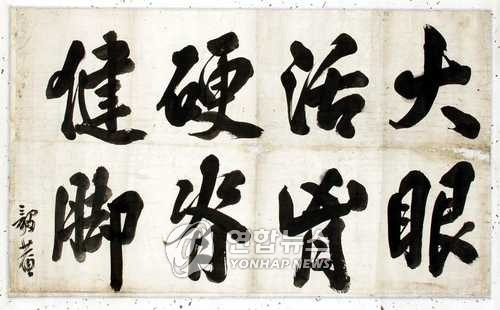 大眼
活胷
硬脊
健脚
毅菴
연합뉴스
YONHAP NEWS